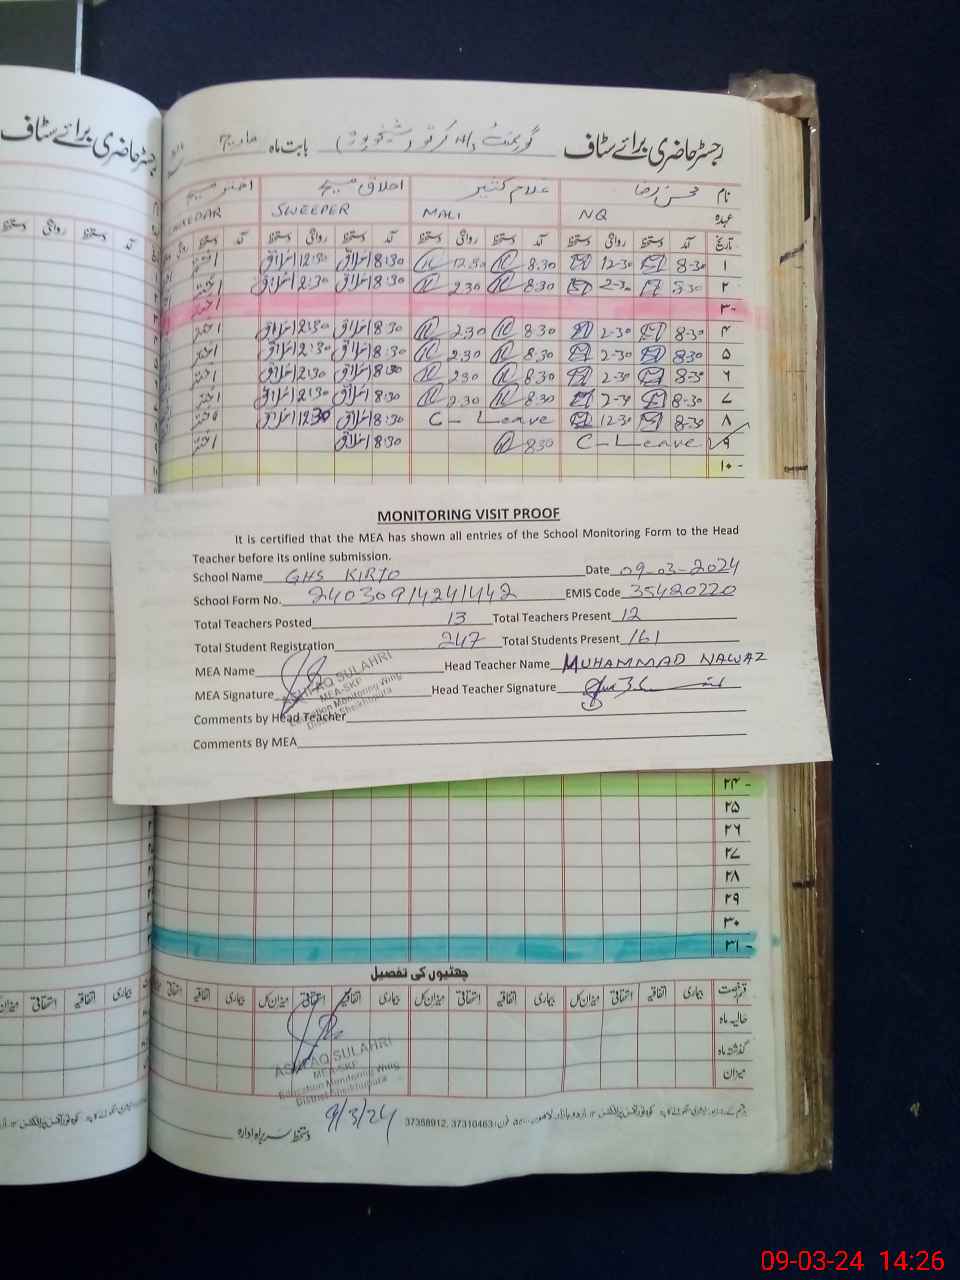 رجسٹر حاضری برائے سٹاف گورنمنٹ ہائی کرتو (شیخوپورہ) بابت ماہ مارچ
رجسٹر حاضری برائے سٹاف
نام محسن رضا غلام شبیر اخلاق مسیح اختر مسیح
عہدہ NQ MALI SWEEPER
تاریخ آمد دستخط روانگی دستخط آمد دستخط روانگی دستخط آمد دستخط روانگی دستخط آمد دستخط
۱ 8-30 12-30 8.30 12.30 8:30 اخلاق 12:30 اخلاق اختر
۲ 8.30 2-30 8.30 2.30 8:30 اخلاق 2:30 اخلاق اختر
۳ اختر
۴ 8-30 2-30 8.30 2.30 8:30 اخلاق 2:30 اخلاق اختر
۵ 8-30 2-30 8.30 2.30 8:30 اخلاق 2:30 اخلاق اختر
۶ 8-30 2-30 8.30 2.30 8:30 اخلاق 2:30 اخلاق اختر
۷ 8-30 2-30 8.30 2.30 8:30 اخلاق 2:30 اخلاق اختر
۸ 8-30 12-30 C - Leave 8:30 اخلاق 12:30 اخلاق اختر
۹ C - Leave 8.30 8:30 اخلاق اختر
۱۰
MONITORING VISIT PROOF
It is certified that the MEA has shown all entries of the School Monitoring Form to the Head
Teacher before its online submission.
School Name GHS KIRTO Date 09-03-2024
School Form No. 24030914241442 EMIS Code 35420220
Total Teachers Posted 13 Total Teachers Present 12
Total Student Registration 247 Total Students Present 161
MEA Name Head Teacher Name MUHAMMAD NAWAZ
MEA Signature Head Teacher Signature
ASHFAQ SULAHRI
MEA-SKP
Education Monitoring Wing
District Sheikhupura
Comments by Head Teacher
Comments By MEA
۲۴
۲۵
۲۶
۲۷
۲۸
۲۹
۳۰
۳۱
چھٹیوں کی تفصیل
قسم رخصت بیماری اتفاقیہ استحقاقی میزان کل بیماری اتفاقیہ استحقاقی میزان کل بیماری اتفاقیہ استحقاقی میزان کل بیماری اتفاقیہ استحقاقی
حالیہ ماہ
گذشتہ ماہ
میزان
ASHFAQ SULAHRI
MEA-SKP
Education Monitoring Wing
District Sheikhupura
9/3/24
37358912, 37310463
دستخط سربراہ ادارہ
09-03-24 14:26